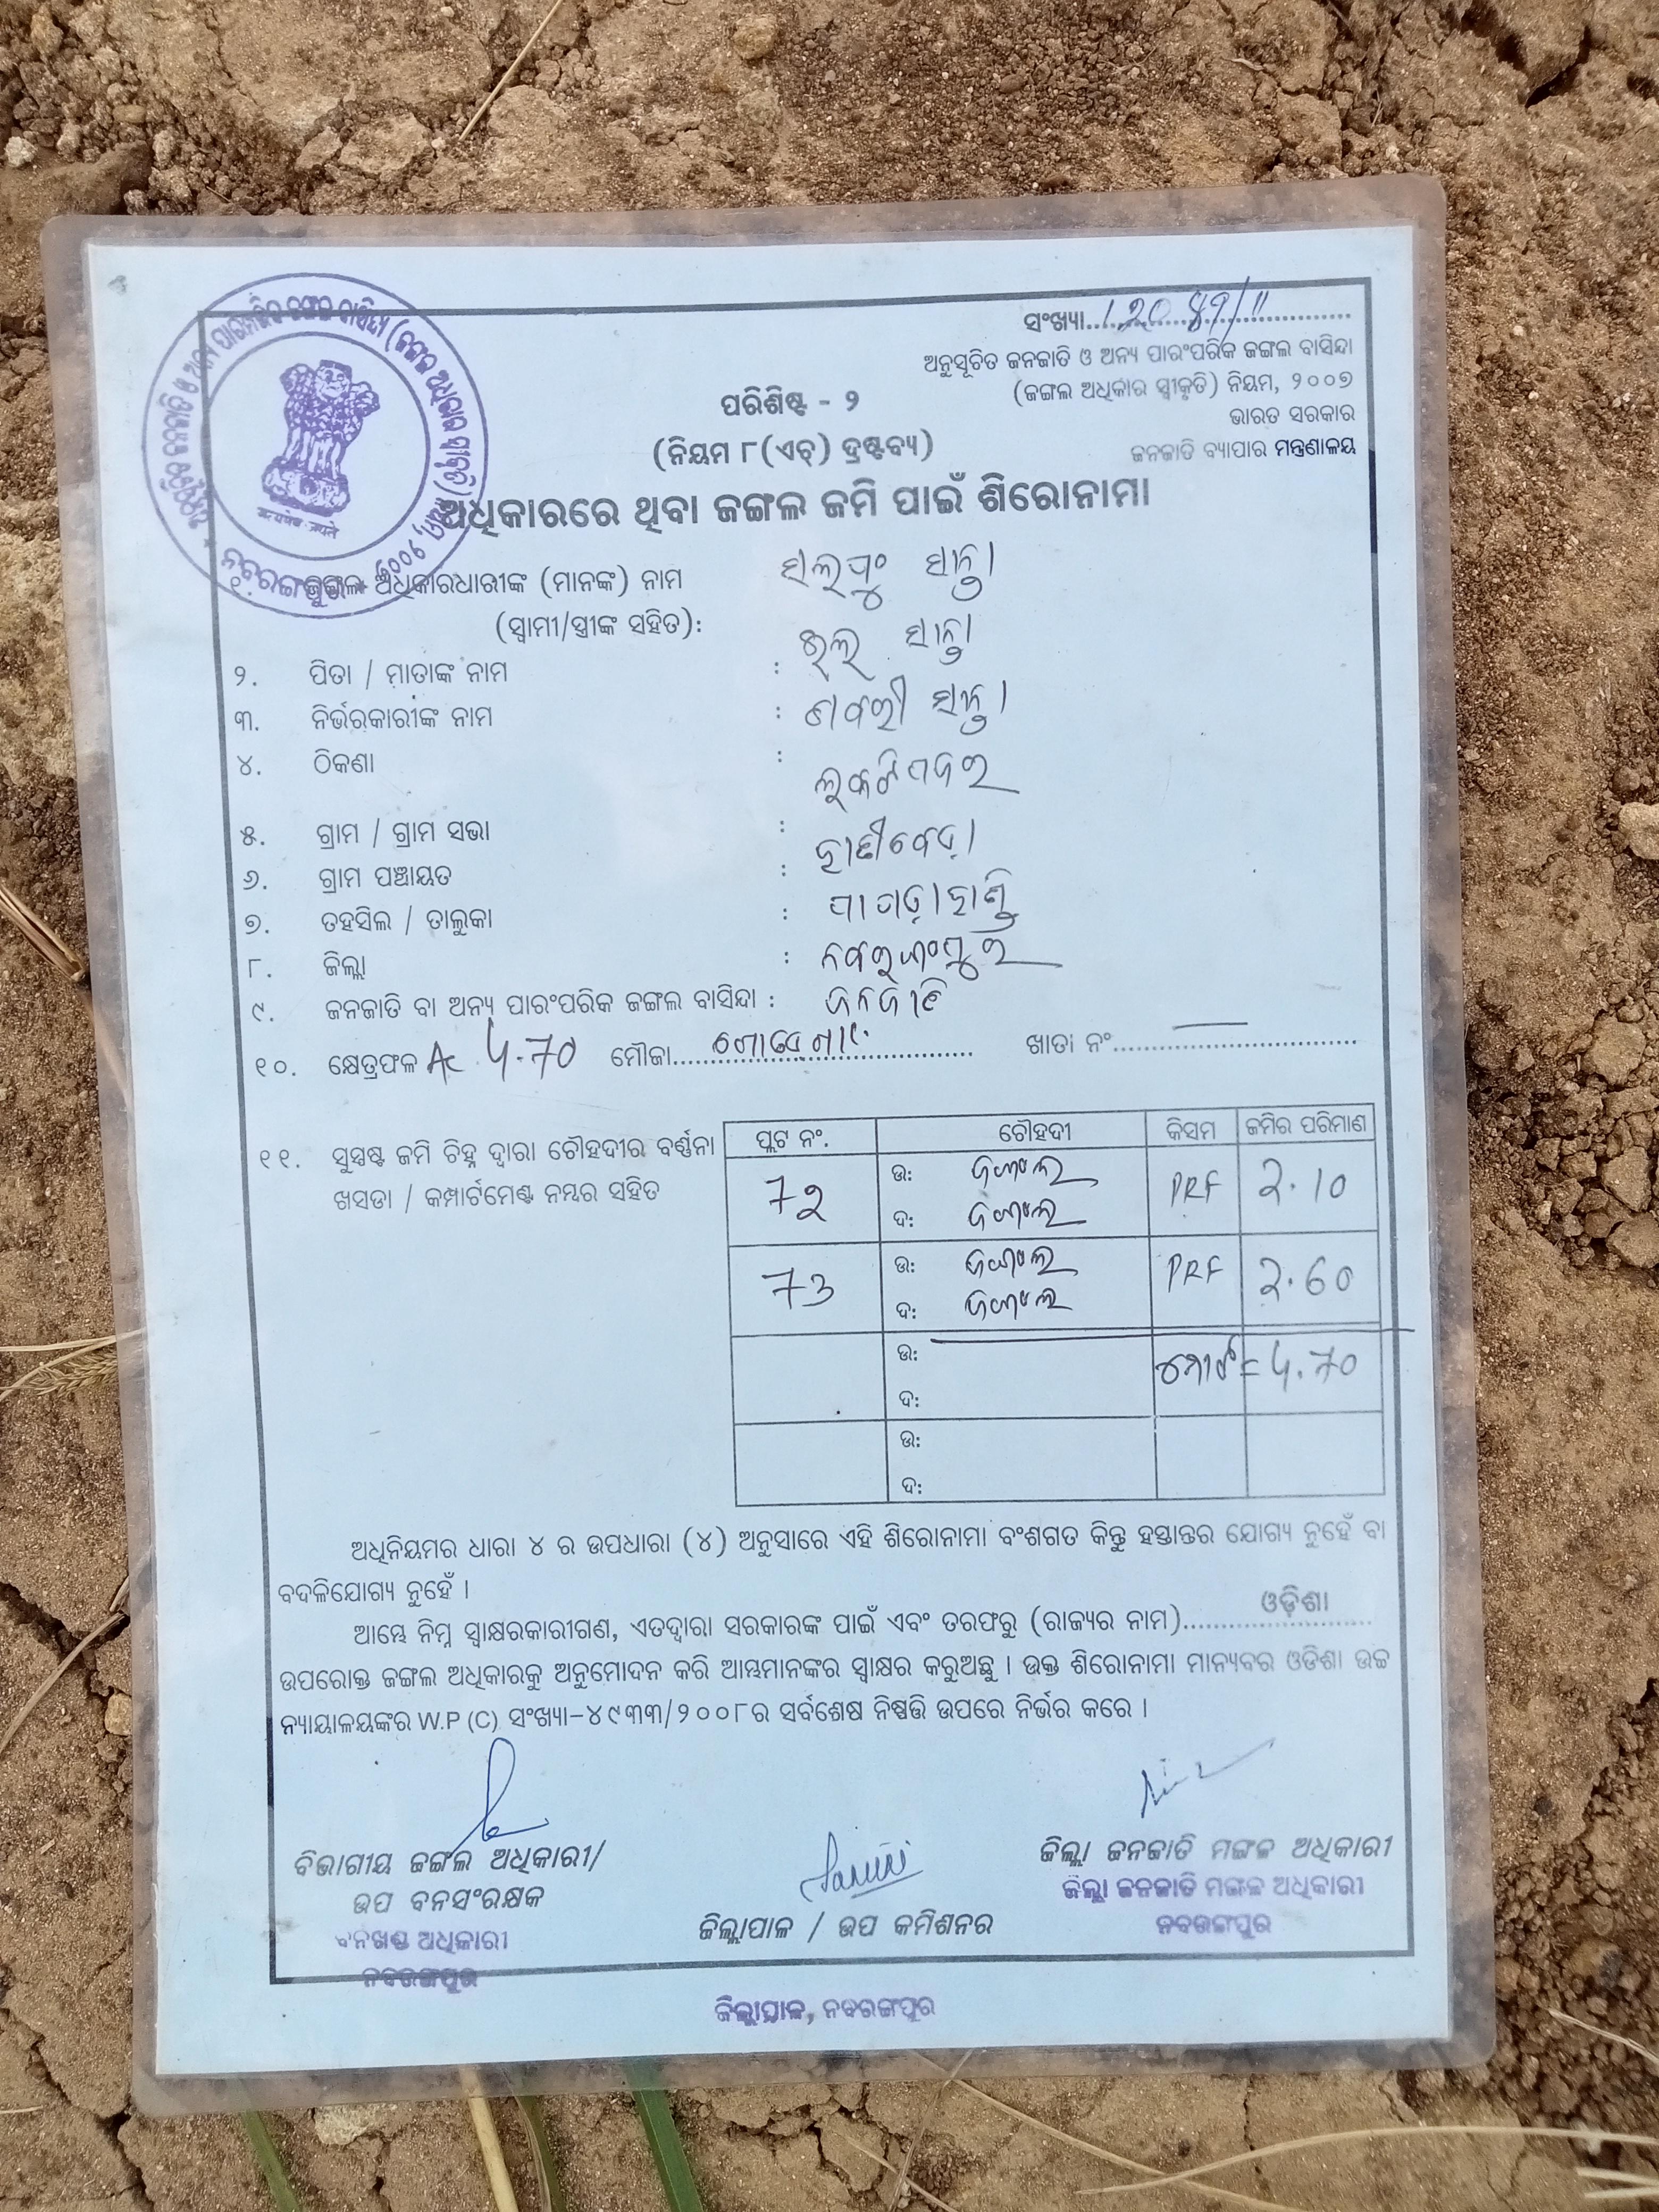 ସଂଖ୍ୟା
ଅନୁସୂଚିତ ଜନଜାତି ଓ ଅନ୍ୟ ପାରଂପରିକ ଜଙ୍ଗଲ ବାସିନ୍ଦା
(ଜଙ୍ଗଲ ଅଧିକାର ସ୍ୱୀକୃତି) ନିୟମ, ୨୦୦୭
ଭାରତ ସରକାର
ଜନଜାତି ବ୍ୟାପାର ମନ୍ତ୍ରଣାଳୟ
ପରିଶିଷ୍ଟ - ୨
(ନିୟମ ୮(ଏଚ୍) ଦ୍ରଷ୍ଟବ୍ୟ)
ଅଧିକାରରେ ଥିବା ଜଙ୍ଗଲ ଜମି ପାଇଁ ଶିରୋନାମା
ନବରଙ୍ଗପୁର
୧. ଜଙ୍ଗଲ ଅଧିକାରଧାରୀଙ୍କ (ମାନଙ୍କ) ନାମ ସାନ୍ତା
(ସ୍ୱାମୀ/ସ୍ତ୍ରୀଙ୍କ ସହିତ):
୨. ପିତା / ମାତାଙ୍କ ନାମ : ସାନ୍ତା
୩. ନିର୍ଭରକାରୀଙ୍କ ନାମ : ସାନ୍ତା
୪. ଠିକଣା :
୫. ଗ୍ରାମ / ଗ୍ରାମ ସଭା :
୬. ଗ୍ରାମ ପଞ୍ଚାୟତ :
୭. ତହସିଲ / ତାଲୁକା : ପାପଡ଼ାହାଣ୍ଡି
୮. ଜିଲ୍ଲା : ନବରଙ୍ଗପୁର
୯. ଜନଜାତି ବା ଅନ୍ୟ ପାରଂପରିକ ଜଙ୍ଗଲ ବାସିନ୍ଦା : ଜନଜାତି
୧୦. କ୍ଷେତ୍ରଫଳ Ac 4.70 ମୌଜା ଖାତା ନଂ
୧୧. ସୁସ୍ପଷ୍ଟ ଜମି ଚିହ୍ନ ଦ୍ୱାରା ଚୌହଦୀର ବର୍ଣ୍ଣନା
ଖସଡା / କମ୍ପାର୍ଟମେଣ୍ଟ ନମ୍ବର ସହିତ
ପ୍ଲଟ ନଂ. ଚୌହଦୀ କିସମ ଜମିର ପରିମାଣ
72 ଉ: ଜଙ୍ଗଲ PRF 2.10
ଦ: ଜଙ୍ଗଲ
73 ଉ: ଜଙ୍ଗଲ PRF 2.60
ଦ: ଜଙ୍ଗଲ
ଉ: ମୋଟ = 4.70
ଦ:
ଉ:
ଦ:
ଅଧିନିୟମର ଧାରା ୪ ର ଉପଧାରା (୪) ଅନୁସାରେ ଏହି ଶିରୋନାମା ବଂଶଗତ କିନ୍ତୁ ହସ୍ତାନ୍ତର ଯୋଗ୍ୟ ନୁହେଁ ବା
ବଦଳିଯୋଗ୍ୟ ନୁହେଁ ।
ଆମ୍ଭେ ନିମ୍ନ ସ୍ୱାକ୍ଷରକାରୀଗଣ, ଏତଦ୍ୱାରା ସରକାରଙ୍କ ପାଇଁ ଏବଂ ତରଫରୁ (ରାଜ୍ୟର ନାମ) ଓଡ଼ିଶା
ଉପରୋକ୍ତ ଜଙ୍ଗଲ ଅଧିକାରକୁ ଅନୁମୋଦନ କରି ଆମ୍ଭମାନଙ୍କର ସ୍ୱାକ୍ଷର କରୁଅଛୁ । ଉକ୍ତ ଶିରୋନାମା ମାନ୍ୟବର ଓଡିଶା ଉଚ୍ଚ
ନ୍ୟାୟାଳୟଙ୍କର W.P (C) ସଂଖ୍ୟା-୪୯୩୩/୨୦୦୮ର ସର୍ବଶେଷ ନିଷ୍ପତ୍ତି ଉପରେ ନିର୍ଭର କରେ ।
ବିଭାଗୀୟ ଜଙ୍ଗଲ ଅଧିକାରୀ/
ଉପ ବନସଂରକ୍ଷକ
ବନଖଣ୍ଡ ଅଧିକାରୀ
ନବରଙ୍ଗପୁର
ଜିଲ୍ଲାପାଳ / ଉପ କମିଶନର
ଜିଲ୍ଲାପାଳ, ନବରଙ୍ଗପୁର
ଜିଲ୍ଲା ଜନଜାତି ମଙ୍ଗଳ ଅଧିକାରୀ
ଜିଲ୍ଲା ଜନଜାତି ମଙ୍ଗଳ ଅଧିକାରୀ
ନବରଙ୍ଗପୁର